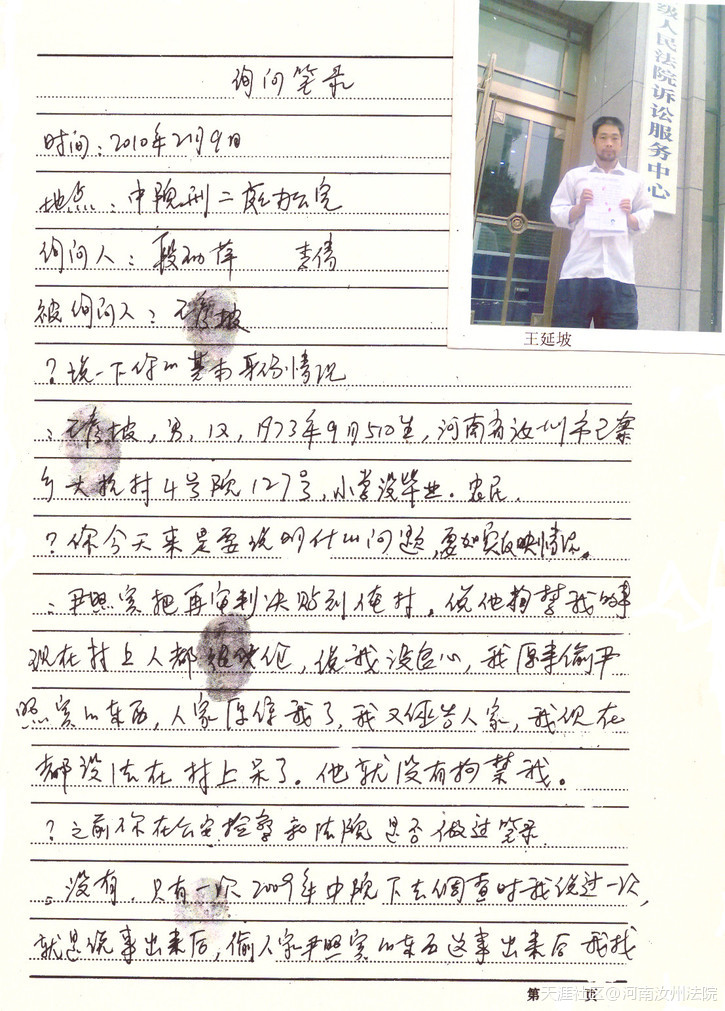 级人民法院诉讼服务中心
王延坡
询问笔录
时间：2010年2月9日
地点：中院刑二庭办公室
询问人：段 萍 李倩
被询问人：王延坡
？说一下你的基本身份情况
：王延坡，男，汉，1973年9月5日生，河南省汝州市 寨
乡大 村4号院127号，小学没毕业。农民。
？你今天来是要说明什么问题，要如实反映情况。
：尹照宾把再审判决贴到俺村，说他拘禁我的事
现在村上人都 ，说我没良心，我原来偷尹
照宾的东西，人家原谅我了，我又 告人家，我现在
都没法在村上呆了。他就没有拘禁我。
？之前你在公安检察和法院是否做过笔录
。没有，只有一次2009年中院下去调查时我说过一次，
就是说事出来后，偷人家尹照宾的东西这事出来后我找
第 页
天涯社区@河南汝州法院